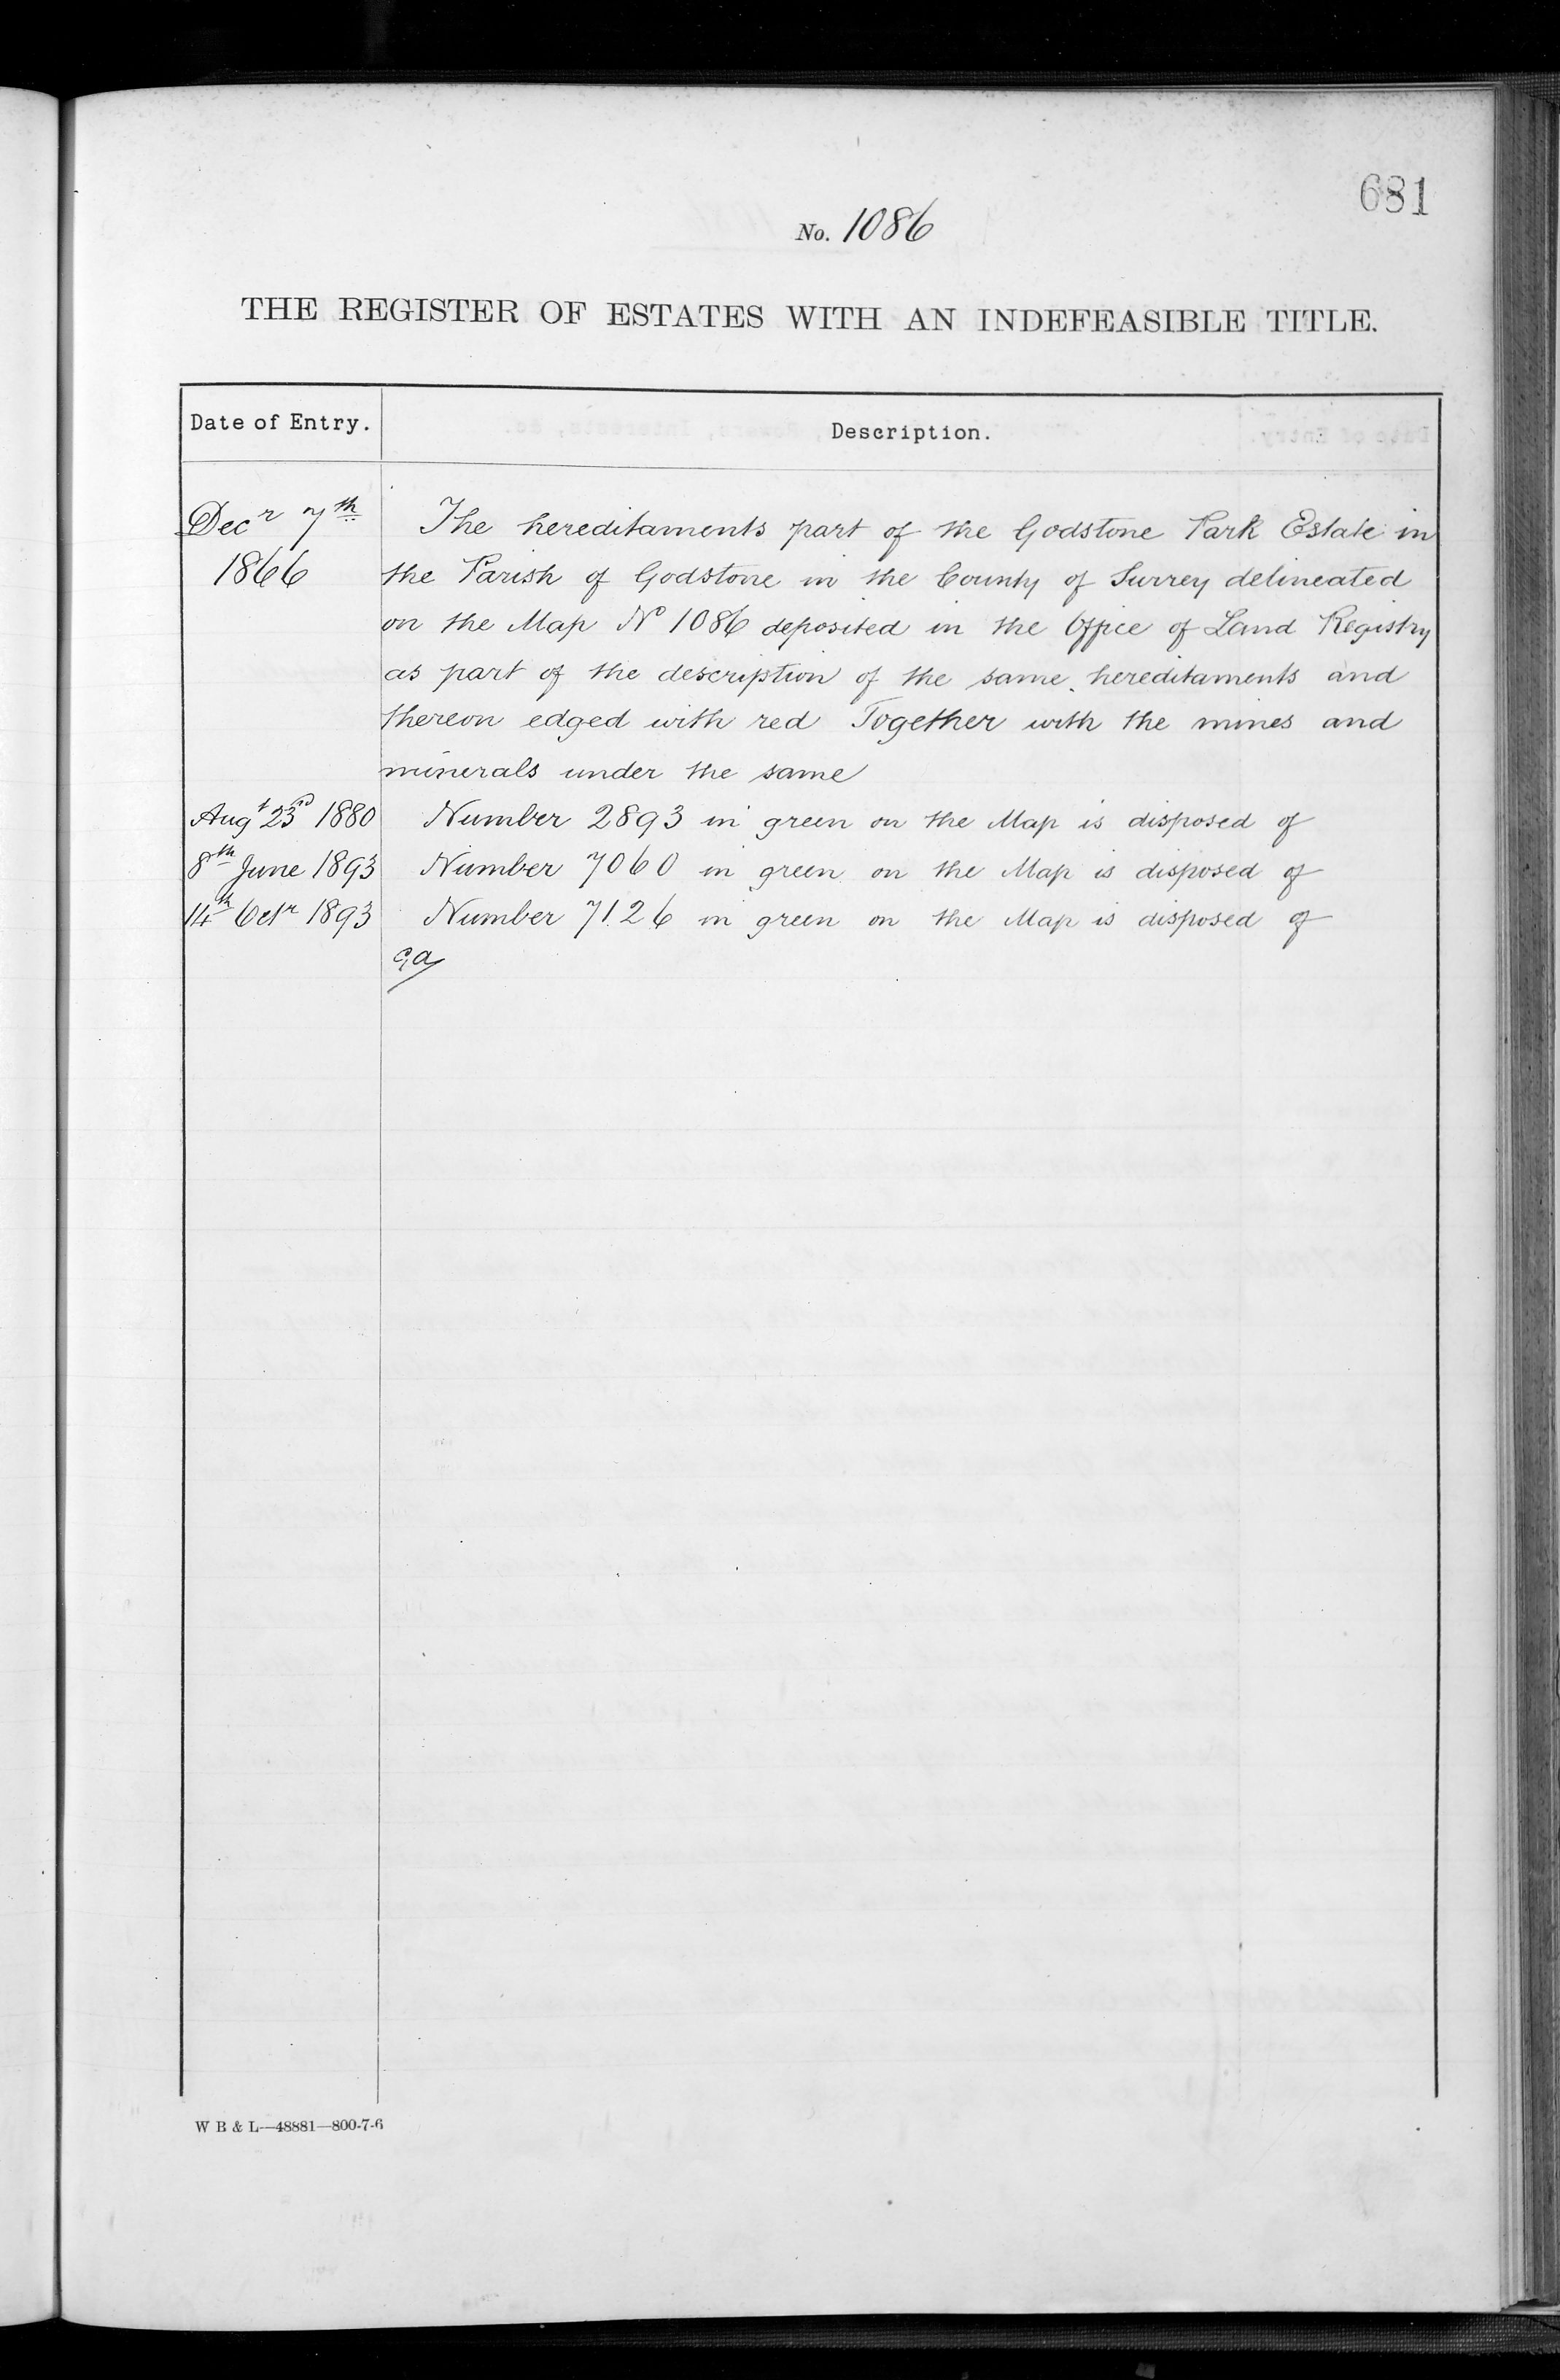 681
No. 1086
THE REGISTER OF ESTATES WITH AN INDEFEASIBLE TITLE.
Date of Entry. Description.
Decr 7th The hereditaments part of the Godstone Park Estate in
1866 the Parish of Godstone in the County of Surrey delineated
on the Map No 1086 deposited in the Office of Land Registry
as part of the description of the same hereditaments and
thereon edged with red Together with the mines and
minerals under the same
Augt 23rd 1880 Number 2893 in green on the Map is disposed of
8th June 1893 Number 7060 in green on the Map is disposed of
14th Octr 1893 Number 7126 in green on the Map is disposed of
W B & L—48881—800-7-6